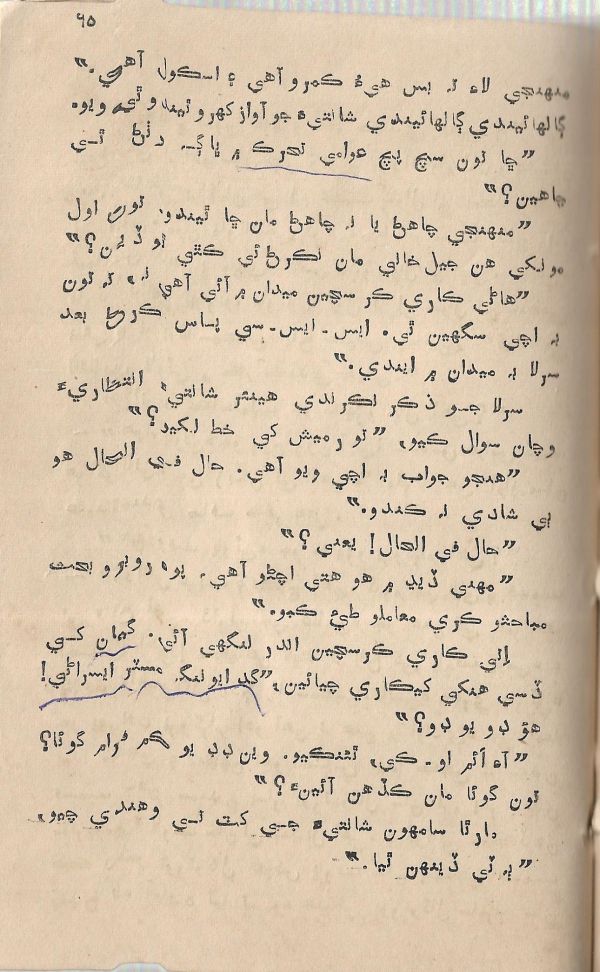 ٦٥
منهنجي لاءِ تہ بس هيءُ ڪمرو آهي ۽ اسڪول آهي.”
ڳالهائيندي ڳالهائيندي شانتيءَ جو آواز کهرو ٿيندو ٿي ويو.
”ڇا تون سچ پچ عوامي تحرڪ ۾ ڀاڱہ وٺڻ ٿي
چاهين؟“
”منهنجي چاهڻ يا نہ چاهڻ مان ڇا ٿيندو. تون اول
مونکي هن جيل خاني مان نڪرڻ ئي ڪٿي ٿو ڏين؟“
”هاڻي ڪاري ڪرسچين ميدان ۾ آئي آهي تہ، تون
بہ اچي سگهين ٿي. ايس-ايس-سي پاس ڪرڻ بعد
سرلا بہ ميدان ۾ ايندي.“
سرلا جو ذڪر نڪرندي هينئر شانتيءَ انتظاريءَ
وچان سوال ڪيو، ”تو رميش کي خط لکيو؟“
”هنجو جواب بہ اچي ويو آهي. حال في الحال هو
ٻي شادي نہ ڪندو.“
”حال في الحال! يعني؟“
”مهني ڏيڍ ۾ هو هتي اچڻو آهي. پوءِ روبرو بحث
مباحثو ڪري معاملو طئي ڪبو.“
اتي ڪاري ڪرسچين اندر لنگهي آئي. گيان کي
ڏسي هنکي کيڪاري چيائين، ”گڊ ايوننگ مسٽر ايسراڻي!
هؤ ڊو يو ڊو؟“
”آءِ ائم او-ڪي، ٿئنڪيو. وين ڊڊ يو ڪم فرام گوئا؟
تون گوئا مان ڪڏهن آئينءَ؟“
مارٿا سامهون شانتيءَ جي کٽ تي وهندي چيو،
”ٻہ ٽي ڏينهن ٿيا.“